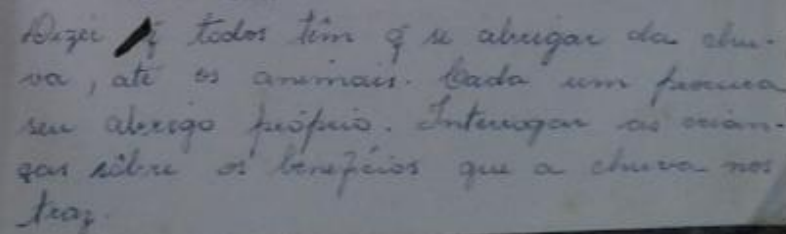 Dizer q̃ todos têm q̃ se abrigar da chu-
va, até os animais. Cada um procura
seu abrigo próprio. Interrogar as crian-
ças sôbre os benefícios que a chuva nos
traz.